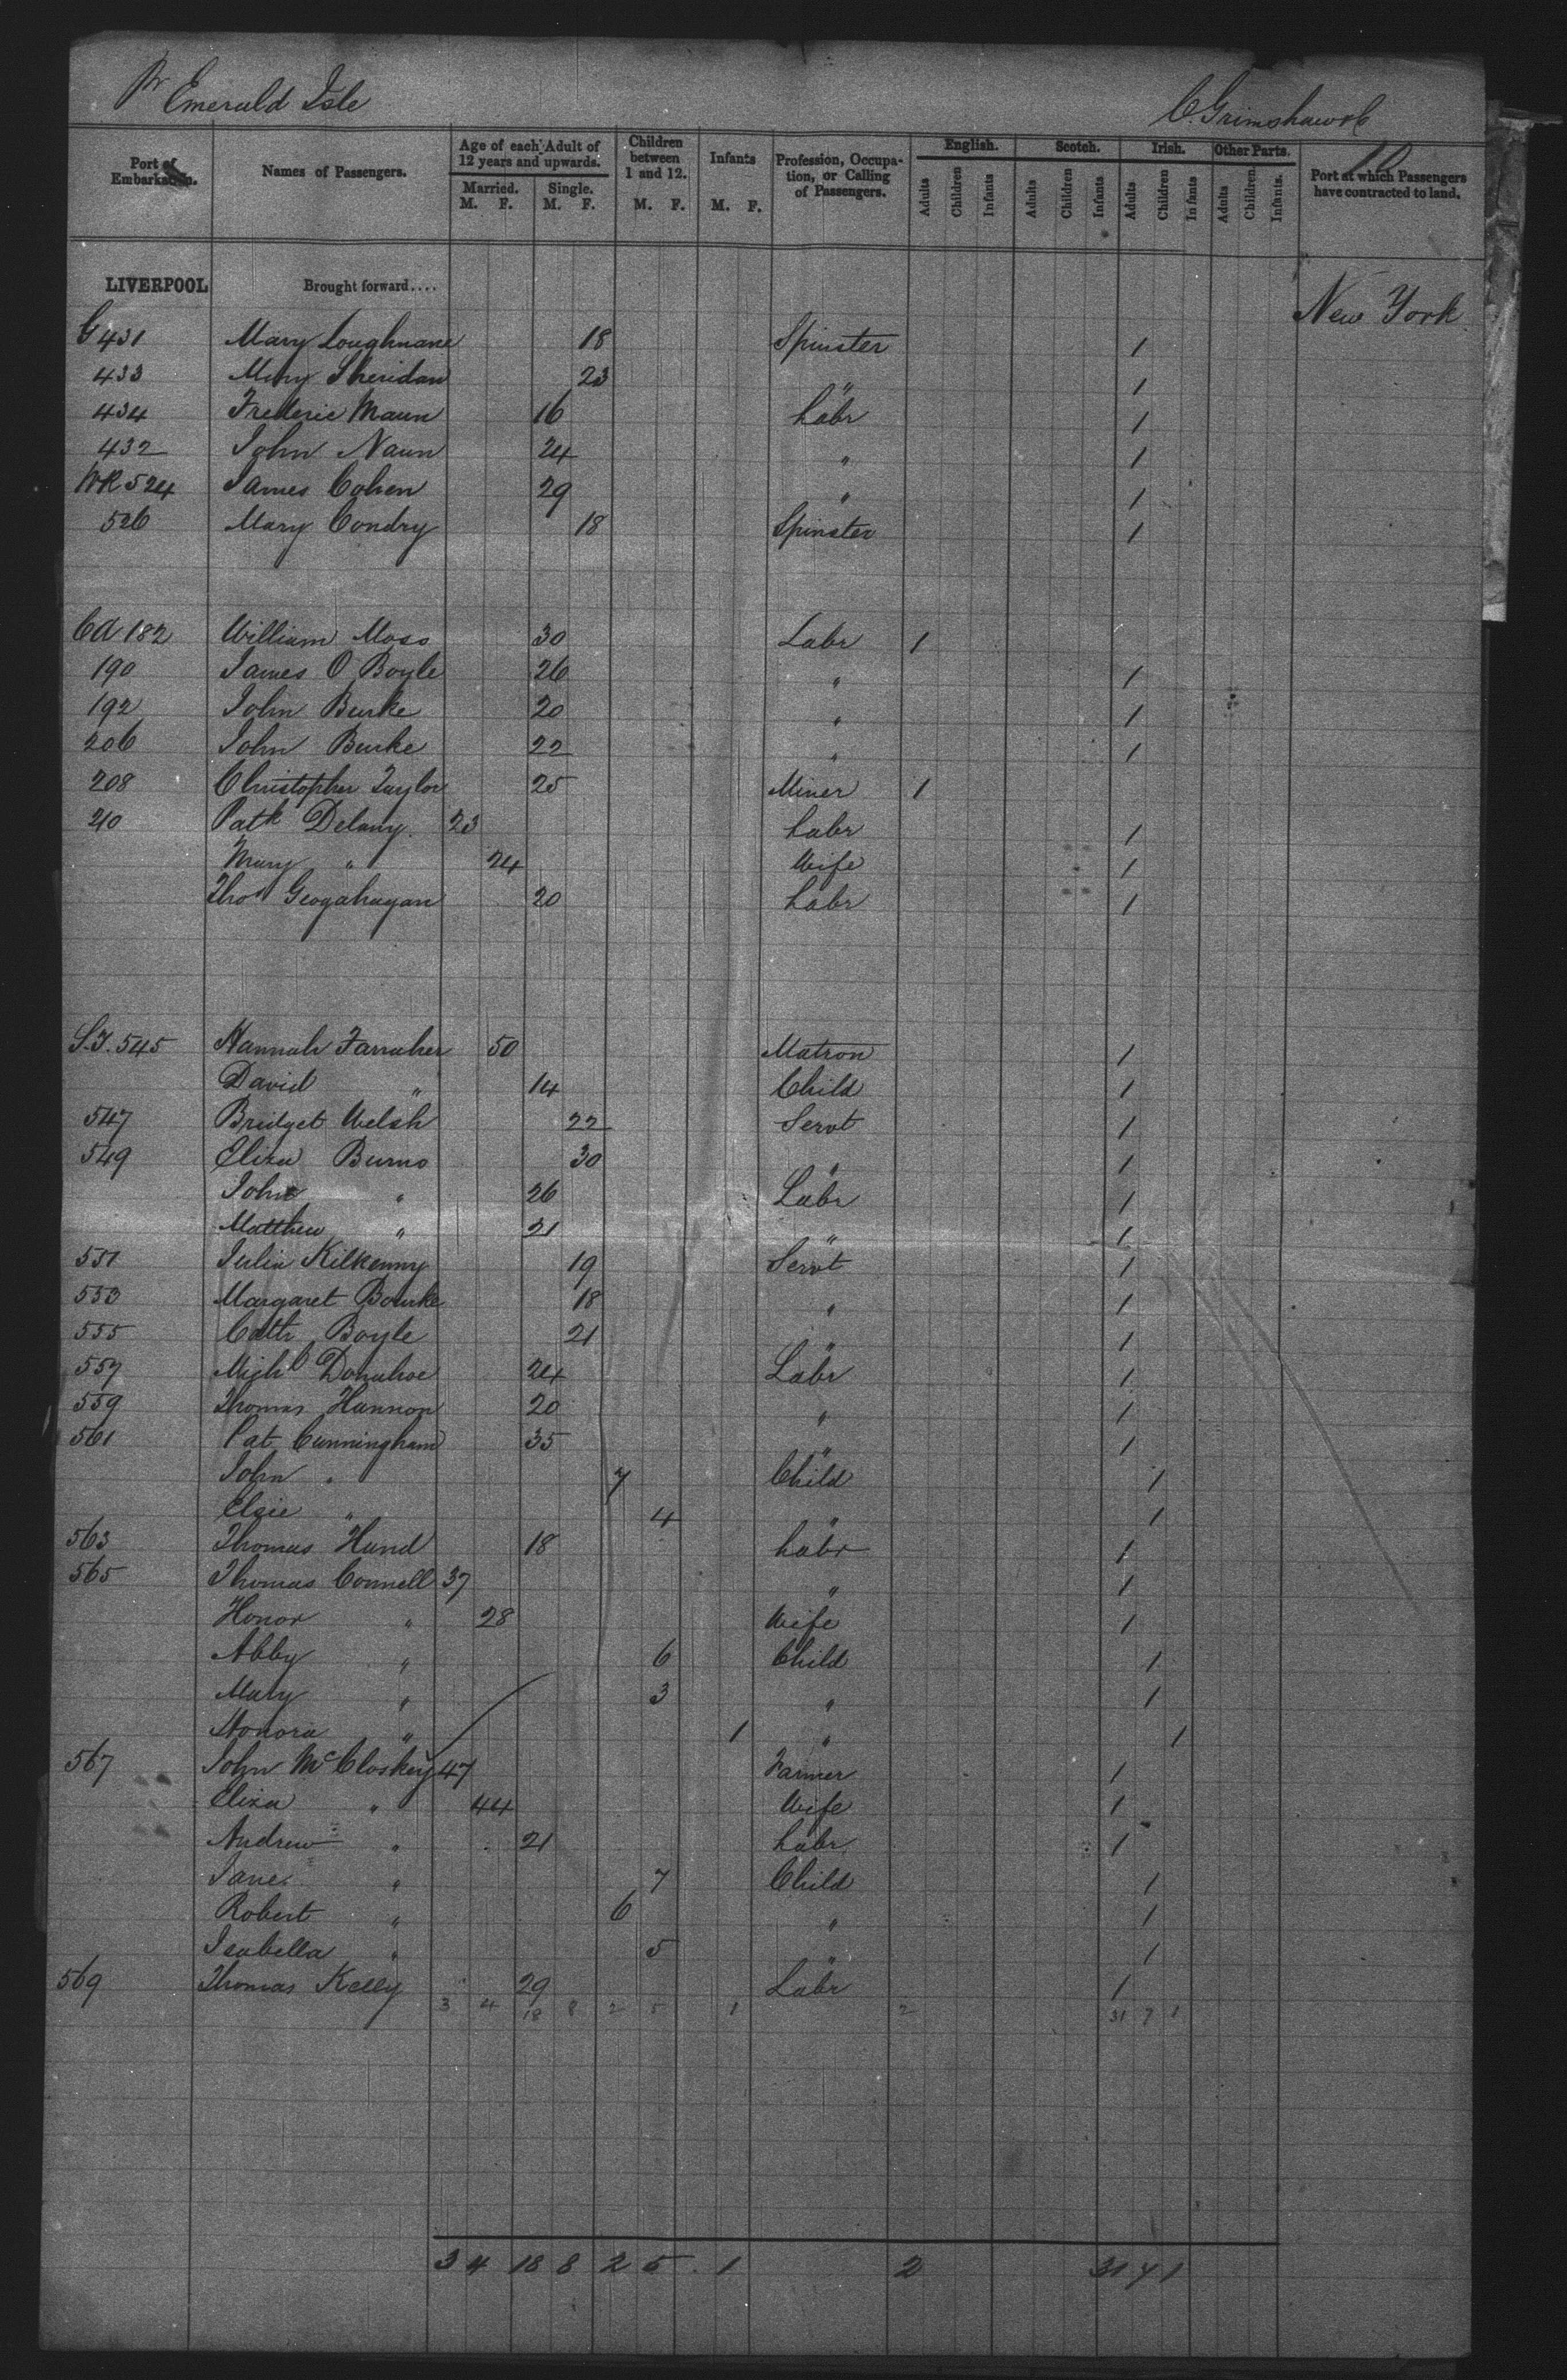 Pr Emerald Isle
C. Grimshaw & C
Port of Embarkation. Names of Passengers. Age of each Adult of 12 years and upwards. Married. M. F. Single. M. F. Children between 1 and 12. M. F. Infants M. F. Profession, Occupation, or Calling of Passengers. English. Adults Children Infants Scotch. Adults Children Infants Irish. Adults Children Infants Other Parts. Adults Children Infants. Port at which Passengers have contracted to land.
LIVERPOOL Brought forward.... New York
G 431 Mary Loughnane 18 Spinster 1
433 Mary Sheridan 23 " 1
434 Frederic Maun 16 Labr 1
432 John Naun 24 " 1
WR 524 James Cohen 29 " 1
526 Mary Condry 18 Spinster 1
Cd 182 William Moss 30 Labr 1
190 James O Boyle 26 " 1
192 John Burke 20 " 1
206 John Burke 22 " 1
208 Christopher Taylor 25 Miner 1
210 Patk Delany. 23 Labr 1
Mary " 24 Wife 1
Thos Geogahagan 20 Labr 1
S.T. 545 Hannah Farraher 50 Matron 1
David " 14 Child 1
547 Bridget Welsh 22 Servt 1
549 Eliza Burns 30 " 1
John " 26 Labr 1
Matthew " 21 " 1
551 Julia Kilkenny 19 Servt 1
553 Margaret Bourke 18 " 1
555 Cath Boyle 21 " 1
557 Michl Donahoe 24 Labr 1
559 Thomas Hannon 20 " 1
561 Pat Cunningham 35 " 1
John " 7 Child 1
Elsie " 4 " 1
563 Thomas Hand 18 Labr 1
565 Thomas Connell 37 " 1
Honor " 28 Wife 1
Abby " 6 Child 1
Mary " 3 " 1
Honora " 1 " 1
567 John McCloskey 47 Farmer 1
Eliza " 44 Wife 1
Andrew " 21 Labr 1
Jane " 7 Child 1
Robert " 6 " 1
Isabella " 5 " 1
569 Thomas Kelly 29 Labr 1
3 4 18 8 2 5 1 2 31 7 1
3 4 18 8 2 5 1 2 31 7 1